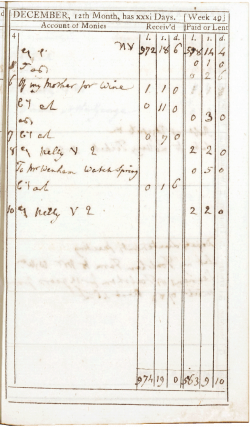 DECEMBER, 12th Month, has xxxi Days. Week 49
Account of Monies Receiv'd Paid or Lent
l. s. d. l. s. d.
4 972 18 6 578 14 4
5 0 1 0
6 0 2 6
of my Mother for Wine 1 1 0 1 1 0
0 11 0
0 3 0
7 0 7 0
8 Kelly V 2 2 2 0
To Mr Denham Watch Spring 0 5 0
0 1 6
10 Kelly V 2 2 2 0
974 19 0 583 9 10